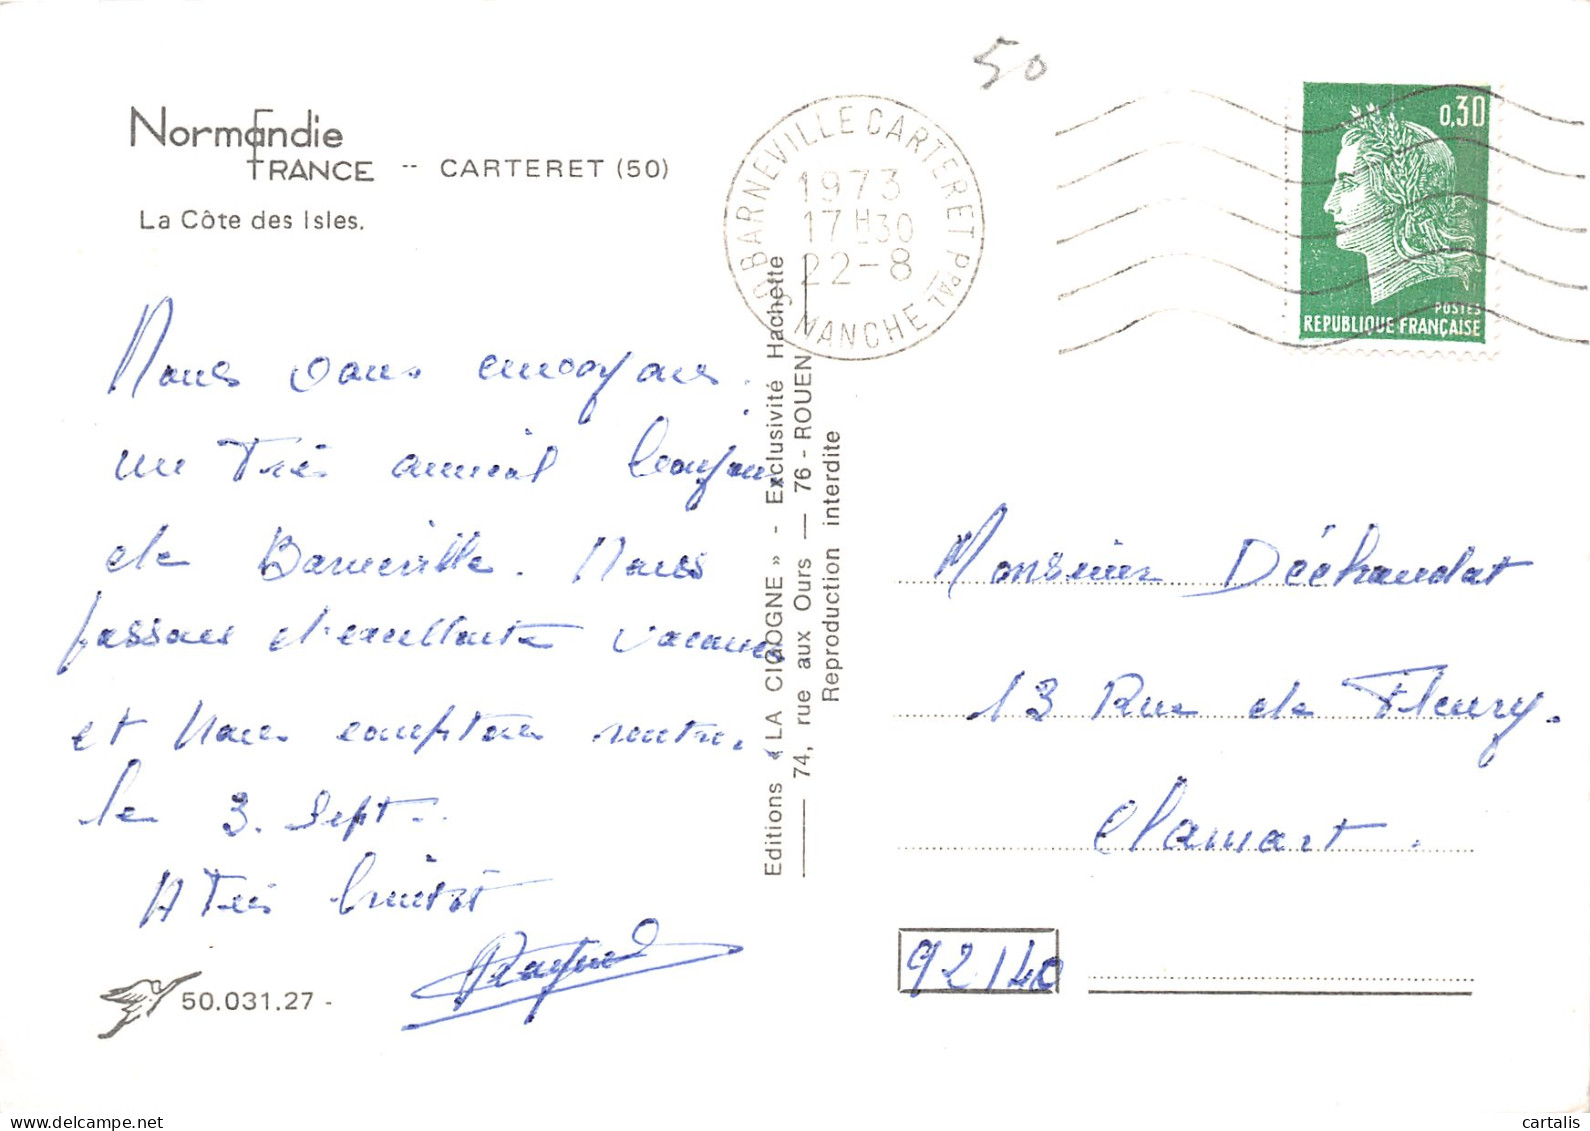 50
Normandie
FRANCE -- CARTERET (50)
La Côte des Isles.
50 BARNEVILLE CARTERET PPAL
1973
17H30
22-8
MANCHE
0,30
POSTES
REPUBLIQUE FRANÇAISE
Nous vous envoyons
un très amical bonjour
de Barneville. Nous
passons d'excellentes vacances
et nous comptons rentrer
le 3. Sept.
A très bientôt
50.031.27 -
Editions « LA CIGOGNE » - Exclusivité Hachette
74, rue aux Ours — 76 - ROUEN
Reproduction interdite
Monsieur Déchaudat
13 Rue de Fleury.
Clamart.
92140
cartalis
www.delcampe.net